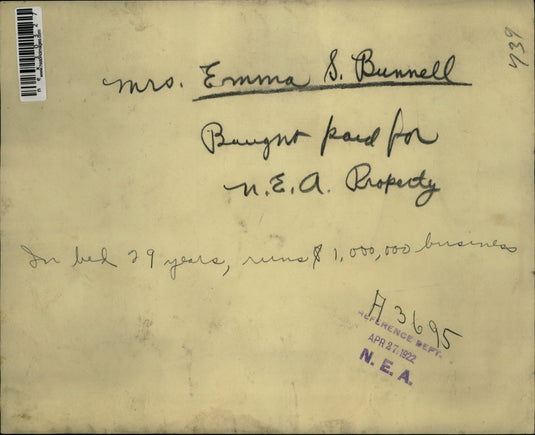 739
Mrs. Emma S. Bunnell
Bought paid for
N.E.A. Property
In bed 29 years, runs $1,000,000 business
A 3695
REFERENCE DEPT.
APR 27 1922
N. E. A.